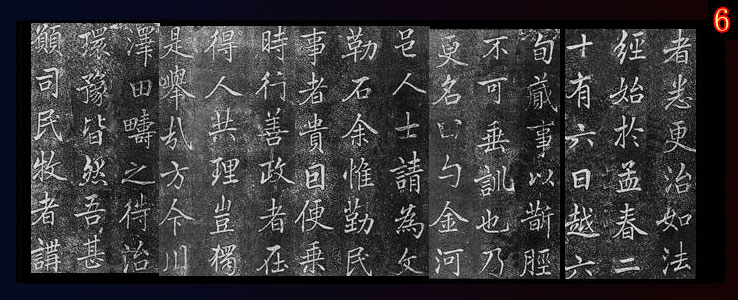 6
者悉更治如法
經始於孟春二
十有六日越六
旬蕆事以斮脛
不可垂訓也乃
更名曰勺金河
邑人士請為文
勒石余惟勤民
事者貴因便乗
時行善政者在
得人共理豈獨
是舉哉方今川
澤田疇之待治
環豫皆然吾甚
願司民牧者講